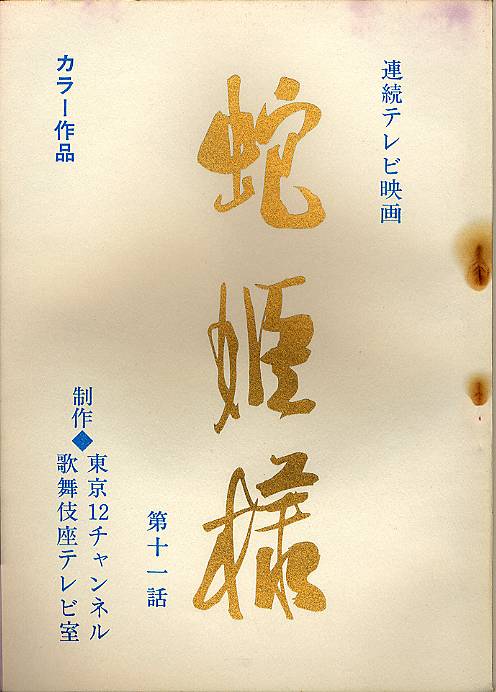 連続テレビ映画
蛇姫様
第十一話
カラー作品
制作◆東京12チャンネル
歌舞伎座テレビ室